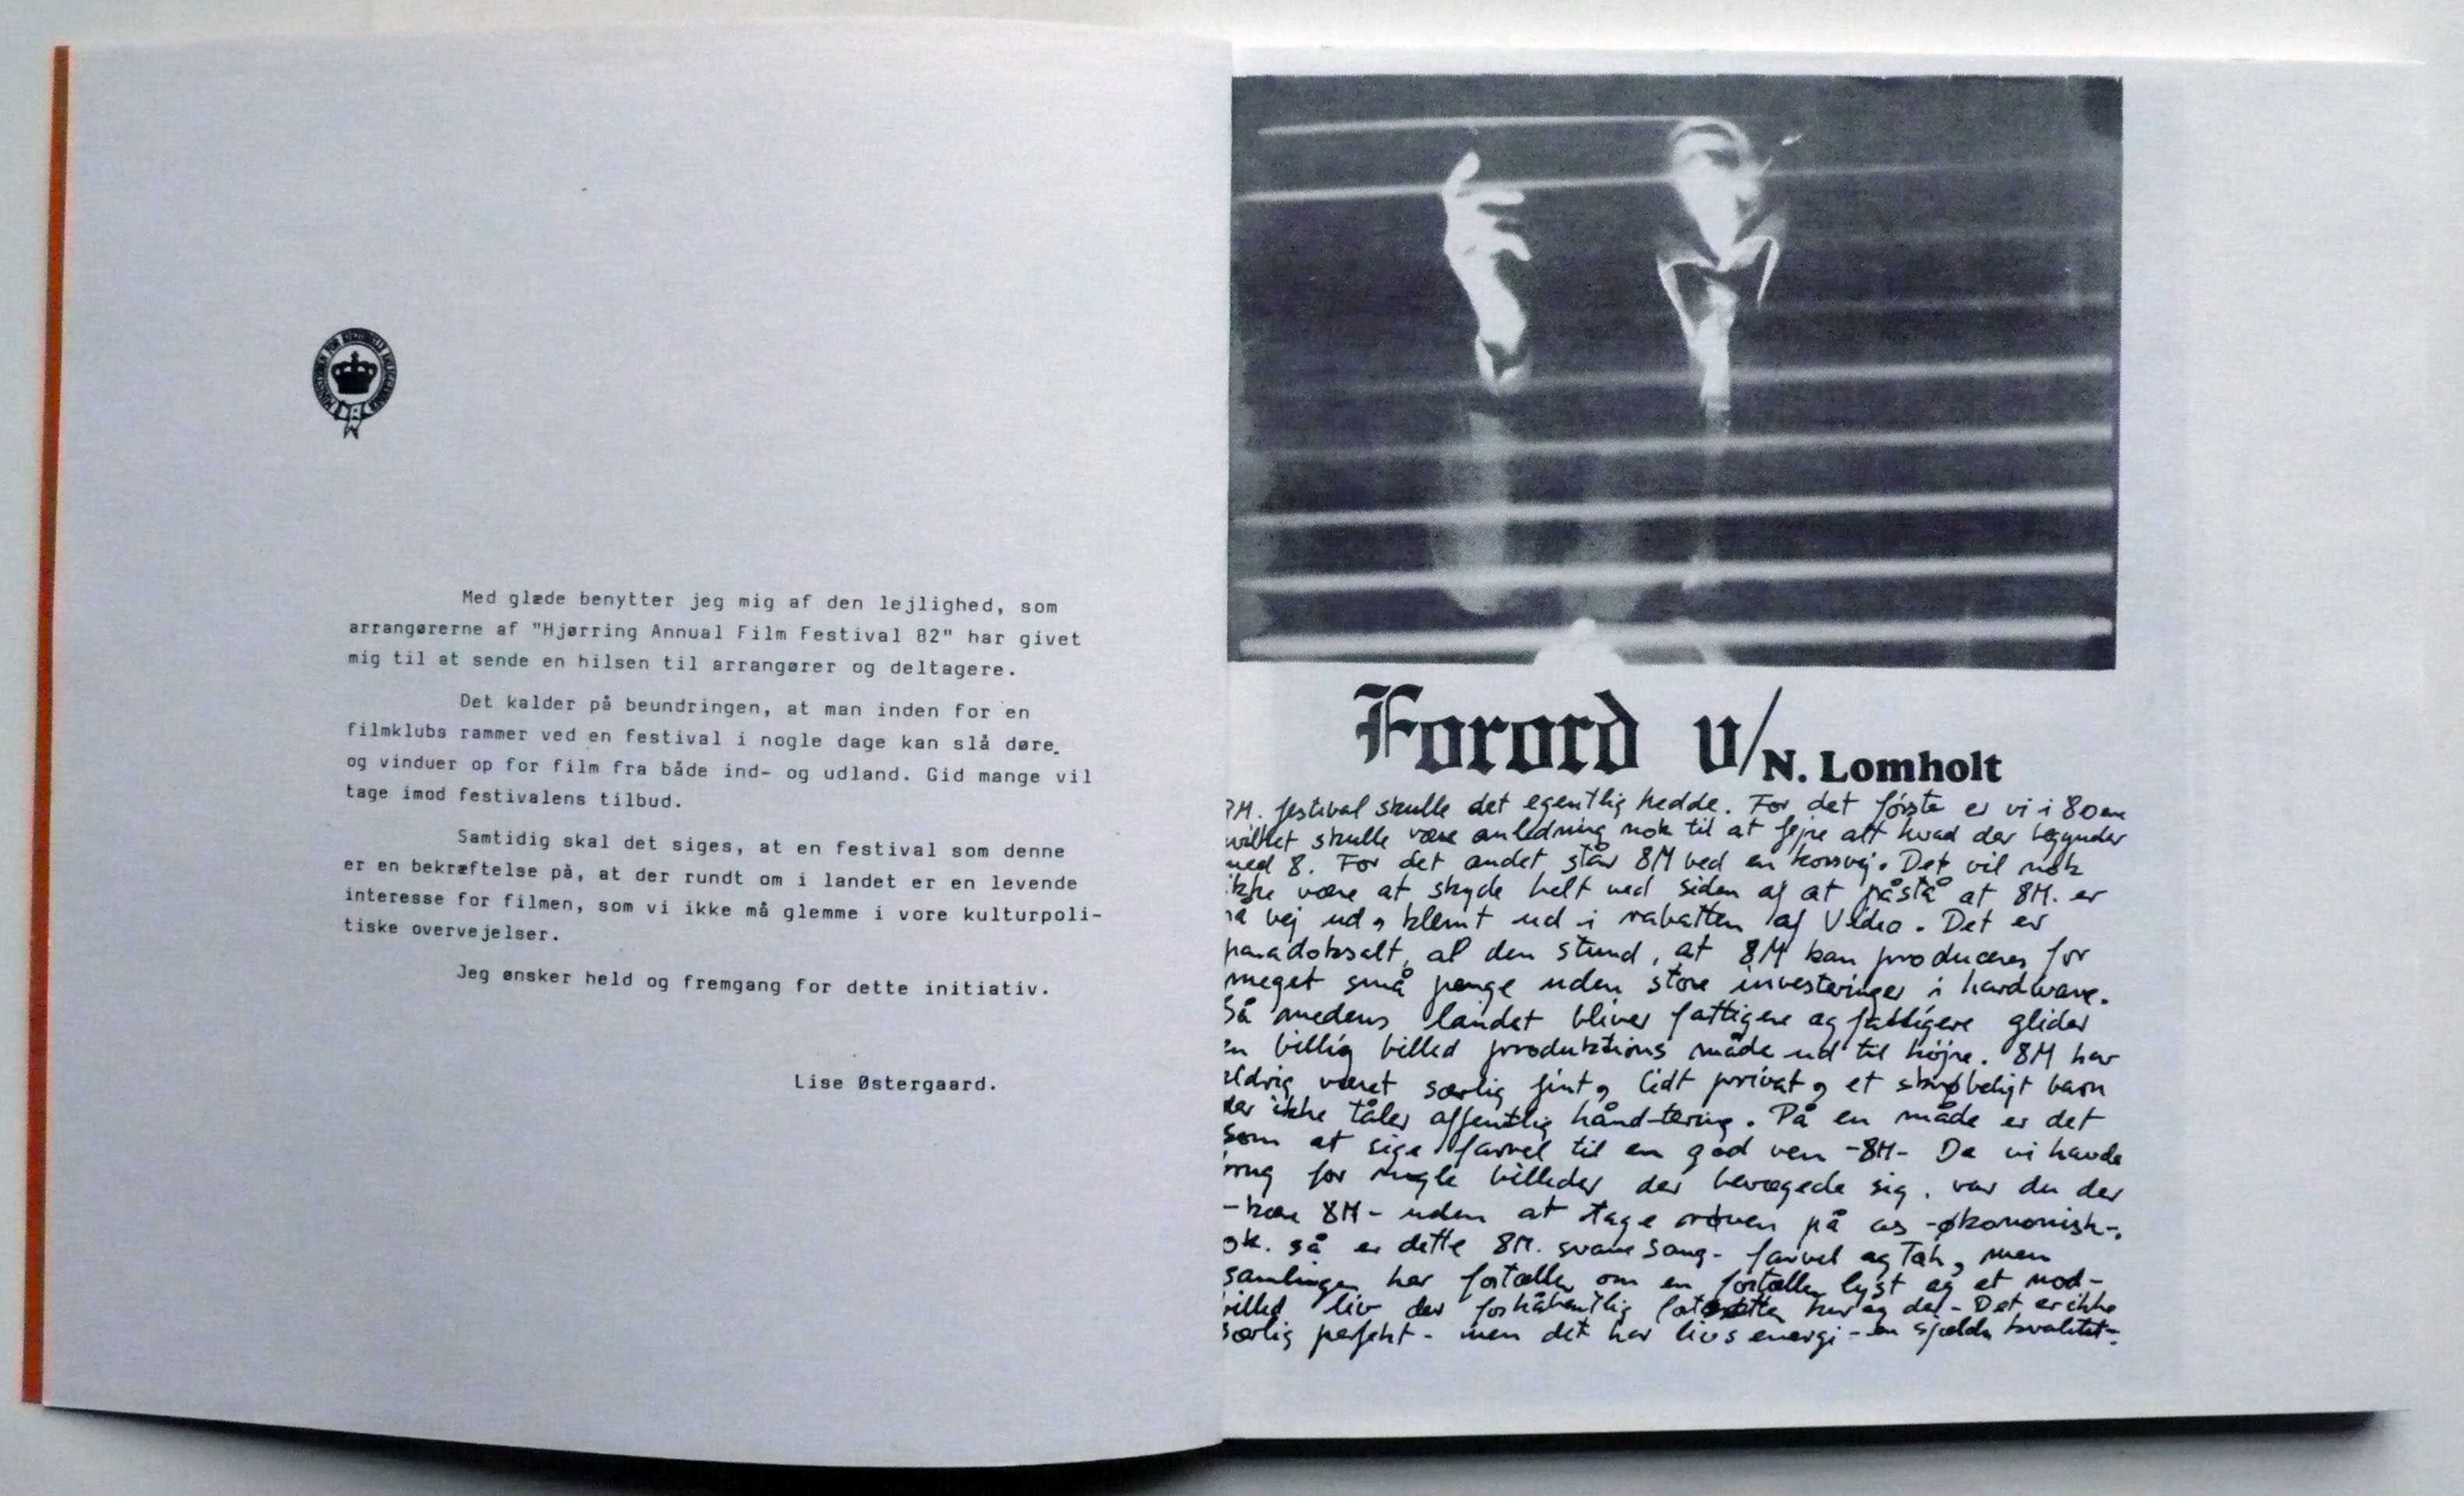 MINISTERIET FOR KULTURELLE ANLIGGENDER
Med glæde benytter jeg mig af den lejlighed, som
arrangørerne af "Hjørring Annual Film Festival 82" har givet
mig til at sende en hilsen til arrangører og deltagere.
Det kalder på beundringen, at man inden for en
filmklubs rammer ved en festival i nogle dage kan slå døre
og vinduer op for film fra både ind- og udland. Gid mange vil
tage imod festivalens tilbud.
Samtidig skal det siges, at en festival som denne
er en bekræftelse på, at der rundt om i landet er en levende
interesse for filmen, som vi ikke må glemme i vore kulturpoli-
tiske overvejelser.
Jeg ønsker held og fremgang for dette initiativ.
Lise Østergaard.
Forord v/N. Lomholt
festival skulle det egentlig hedde. For det første er vi i 80erne
skulle være anledning nok til at fejre alt hvad der begynder
med 8. For det andet står 8M ved en korsvej. Det vil nok
ikke være at skyde helt ved siden af at påstå at 8M. er
på vej ud, klemt ud i rabatten af Video. Det er
paradoksalt, al den stund, at 8M kan produceres for
meget små penge uden store investeringer i hardware.
Så medens landet bliver fattigere og fattigere glider
en billig billed produktions måde ud til højre. 8M har
aldrig været særlig fint, lidt privat, et skrøbeligt barn
der ikke tåler offentlig hånd-tering. På en måde er det
som at sige farvel til en god ven -8M- Da vi havde
brug for nogle billeder der bevægede sig, var du der
-kære 8M- uden at tage røven på os -økonomisk-.
ok. så er dette 8M. svane sang- farvel og Tak, men
samlingen her fortæller om en fortælle lyst og et mod-
billed liv der forhåbentlig her og der- Det er ikke
særlig perfekt- men det har livs energi- en sjælden kvalitet-.